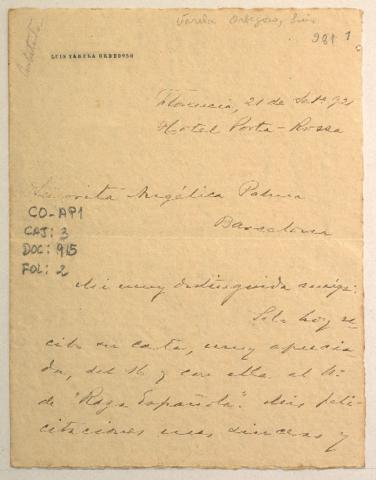 Varela Orbegoso, Luis
981 1
LUIS VARELA ORBEGOSO
Florencia, 21 de Set. 921
Hotel Porta-Rossa
Señorita Angélica Palma
Barcelona
CO-AP1
CAJ: 3
DOC: 915
FOL: 2
Mi muy distinguida amiga:
Solo hoy re-
cibo su carta, muy aprecia
da, del 16 y con ella el Nº
de "Raza Española". Mis feli-
citaciones mas sinceras y